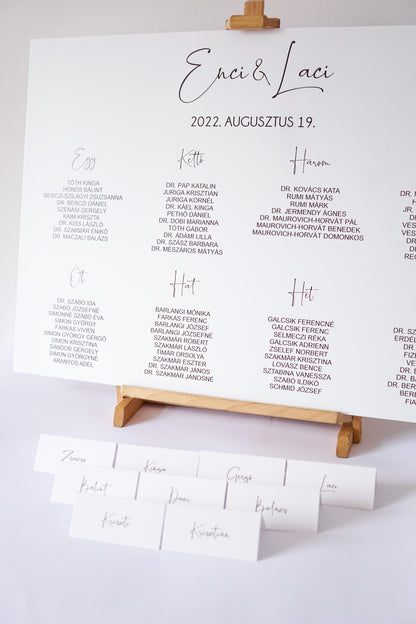 Enci & Laci
2022. AUGUSZTUS 19.
Egy
TÓTH KINGA
HONOS BÁLINT
BERCZI-SZILÁGYI ZSUZSANNA
DR. BERCZI DÁNIEL
SZÉNÁSI GERGELY
KAIM KRISZTA
DR. KISS LÁSZLÓ
DR. SZAKMÁR ENIKŐ
DR. MACZALI BALÁZS
Kettő
DR. PAP KATALIN
JURIGA KRISZTIÁN
JURIGA KORNÉL
DR. KÁEL KINGA
PETHŐ DÁNIEL
DR. DOBI MARIANNA
TÓTH GÁBOR
DR. ÁDÁMI LILLA
DR. SZÁSZ BARBARA
DR. MÉSZÁROS MÁTYÁS
Három
DR. KOVÁCS KATA
RUMI MÁTYÁS
RUMI MÁRK
DR. JERMENDY ÁGNES
DR. MAUROVICH-HORVÁT PÁL
MAUROVICH-HORVÁT BENEDEK
MAUROVICH-HORVÁT DOMONKOS
Öt
DR. SZABÓ IDA
SZABÓ JÓZSEFNÉ
SIMONNÉ SZABÓ ÉVA
SIMON GYÖRGY
FARKAS VIVIEN
SIMON GYÖRGY GERGŐ
SIMON KRISZTINA
SÁNDOR GERGELY
SIMON GYÖRGYNÉ
ARANYOS ADÉL
Hat
BARLANGI MÓNIKA
FARKAS FERENC
BARLANGI JÓZSEF
BARLANGI JÓZSEFNÉ
SZAKMÁR RÓBERT
SZAKMÁR LÁSZLÓ
TÍMÁR ORSOLYA
SZAKMÁR ESZTER
DR. SZAKMÁR JÁNOS
DR. SZAKMÁR JÁNOSNÉ
Hét
GALCSIK FERENCNÉ
GALCSIK FERENC
SELMECZI RÉKA
GALCSIK ADRIENN
ZSELEF NORBERT
SZAKMÁR KRISZTINA
LOVÁSZ BENCE
SZTABINA VANESSZA
SZABÓ ILDIKÓ
SCHMID JÓZSEF
Zsuzsó
Kinga
Gergő
Laci
Bálint
Dani
Balázs
Kriszti
Krisztián